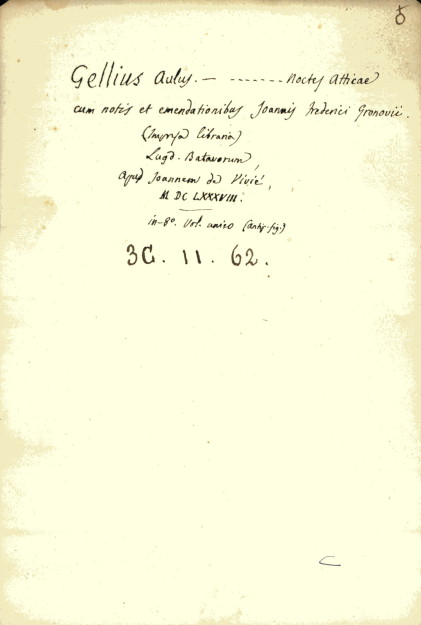 8
Gellius Aulus. — - - - - - - - Noctes Atticae
cum notis et emendationibus Joannis Frederici Gronovii.
(Impressa libraria)
Lugd. Batavorum,
apud Joannem de Vivié,
M DC LXXXVIII.
in-8°. Vol. unico (antip. fig.)
3C. 11. 62.